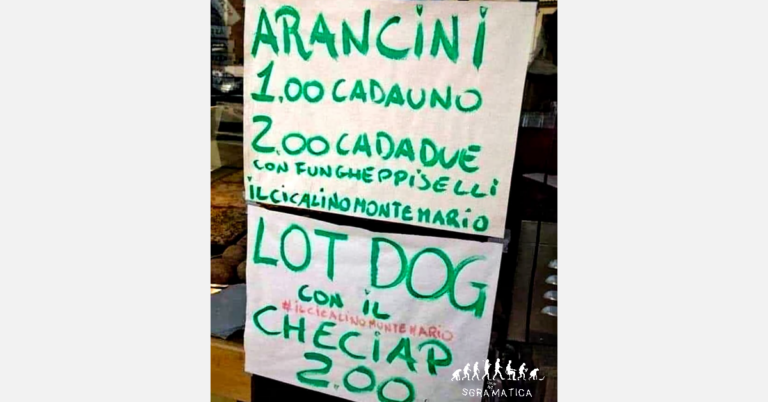 ARANCINI
1,00 CADAUNO
2,00 CADADUE
CON FUNGHEPPISELLI
ILCICALINOMONTEMARIO
LOT DOG
CON IL
#ILCICALINOMONTEMARIO
CHECIAP
2.00
SGRAMATICA